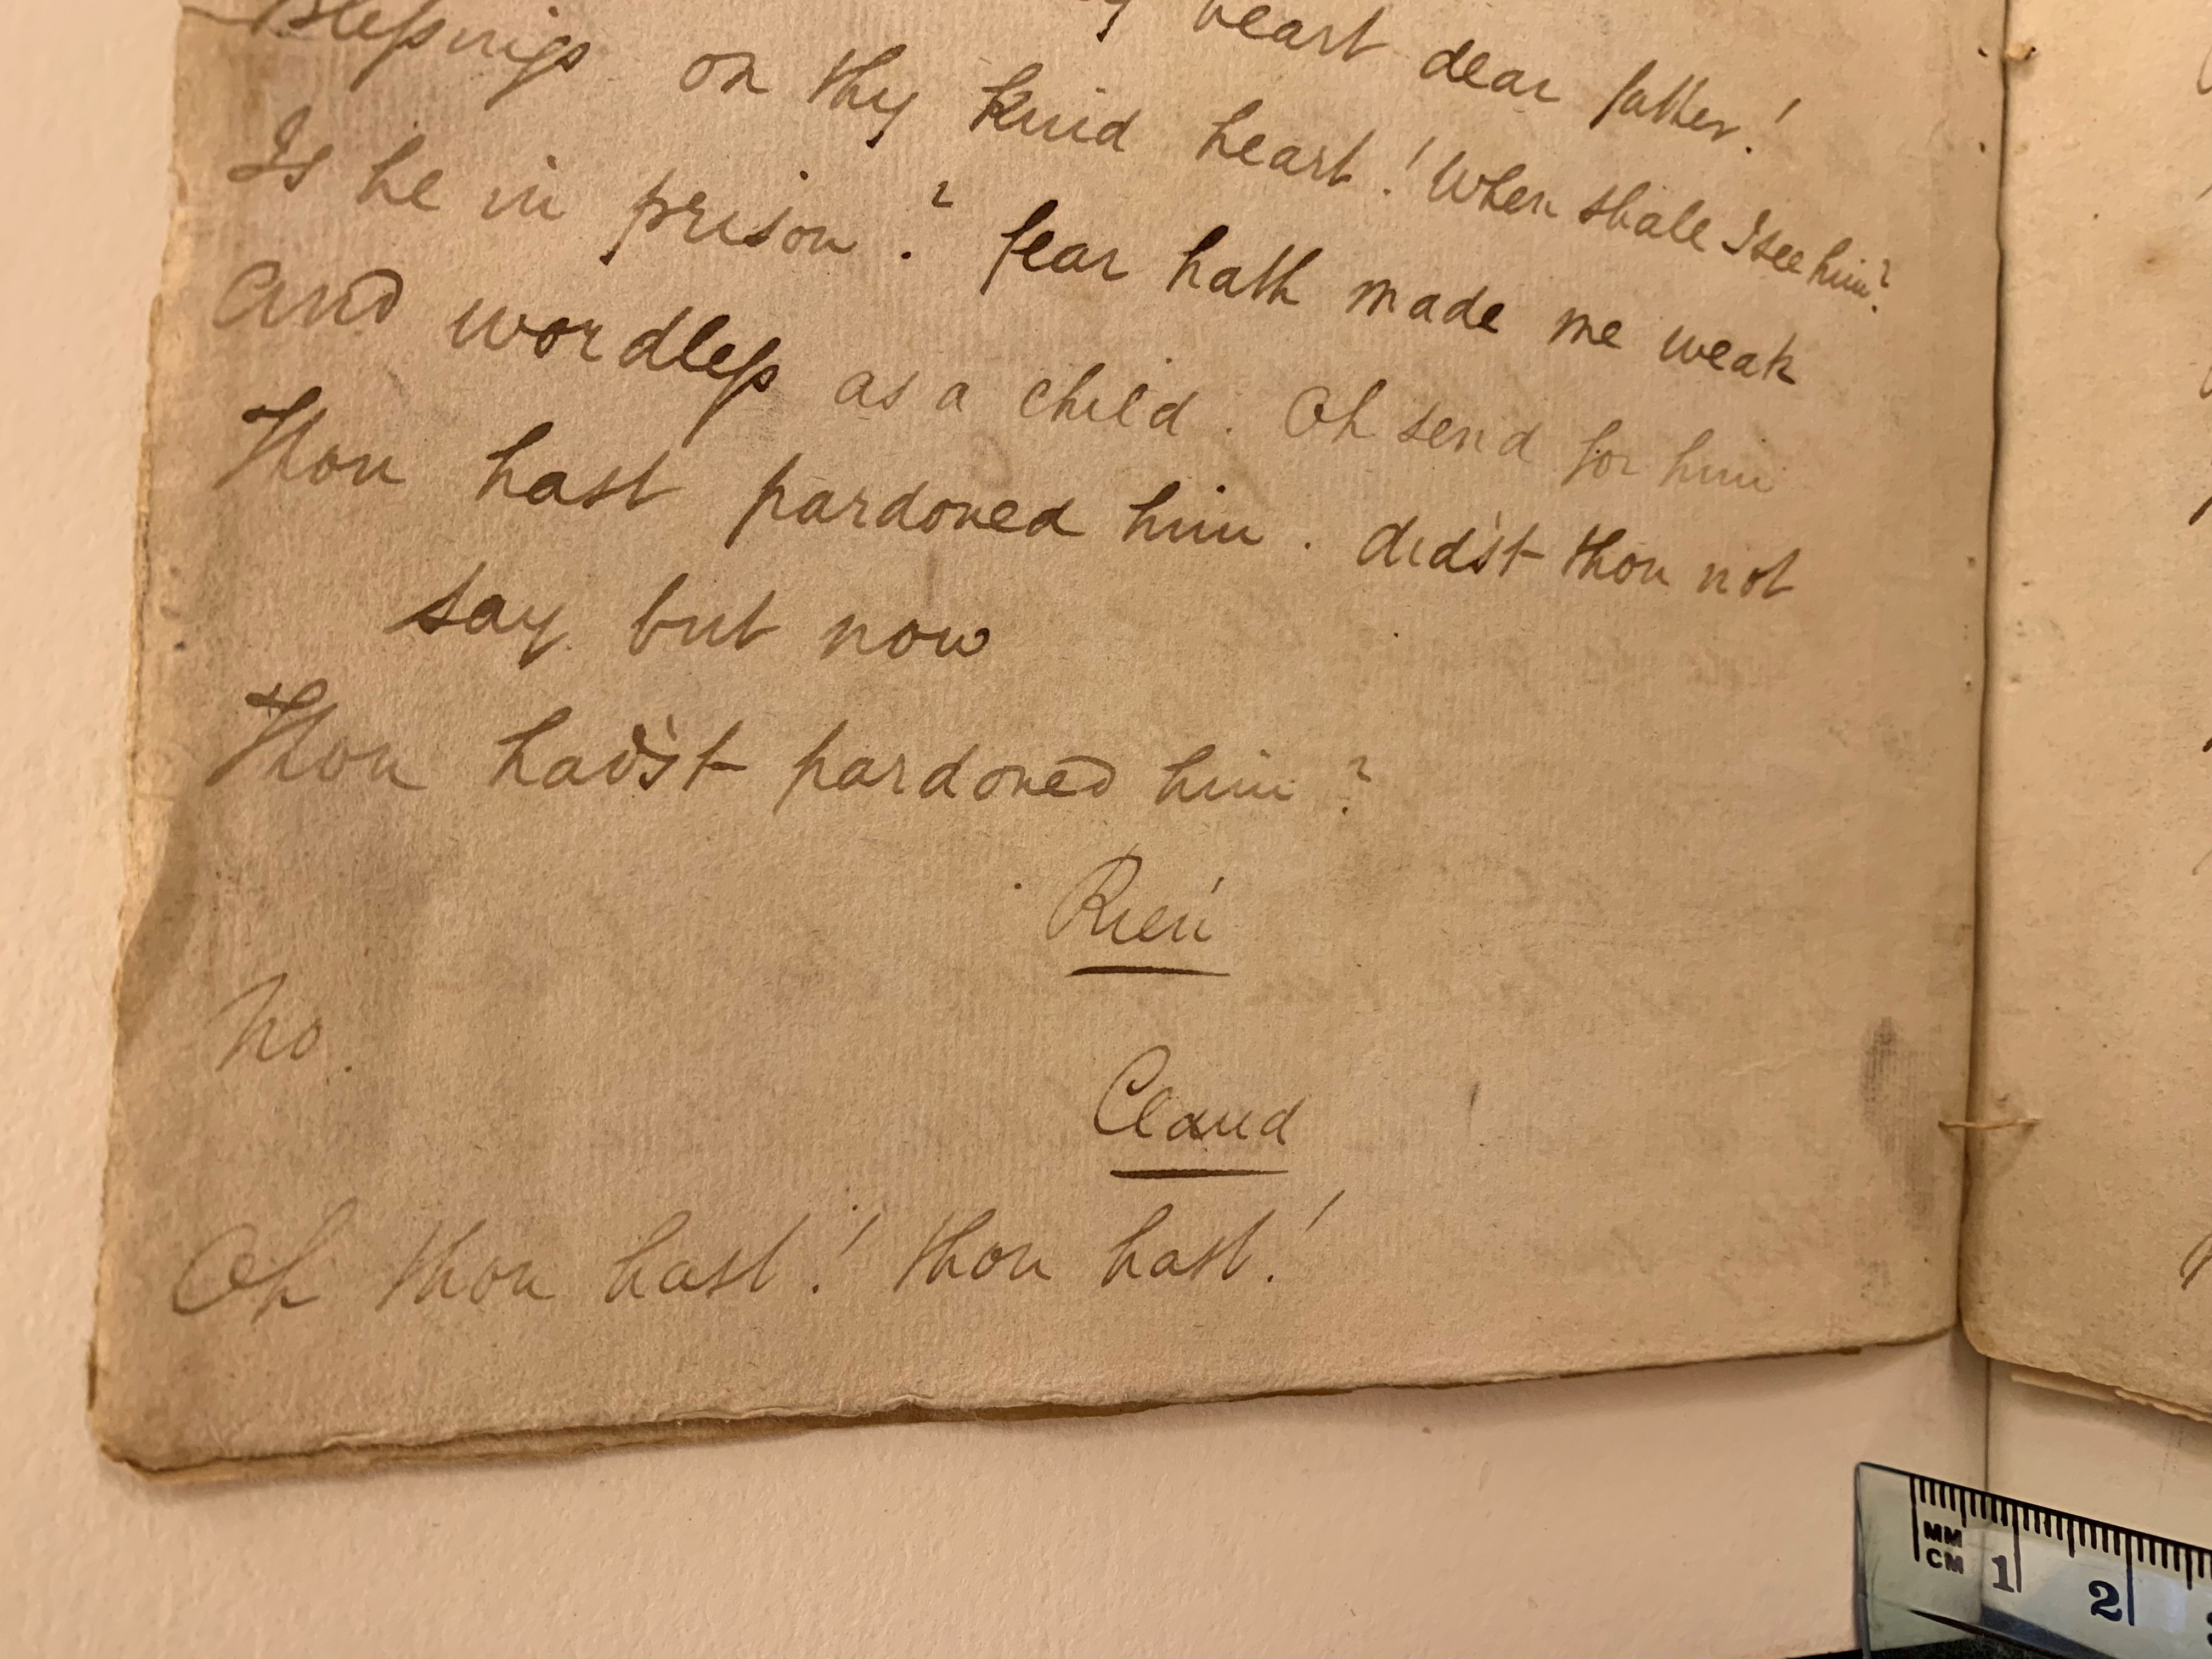 heart dear father!
Blessings on thy kind heart! When shall I see him?
Is he in prison? fear hath made me weak
and wordless as a child. Oh send for him
Thou hast pardoned him. did'st thou not
say but now
Thou had'st pardoned him?
Rien
No.
Claud
Oh thou hast! thou hast!
MM
CM 1 2